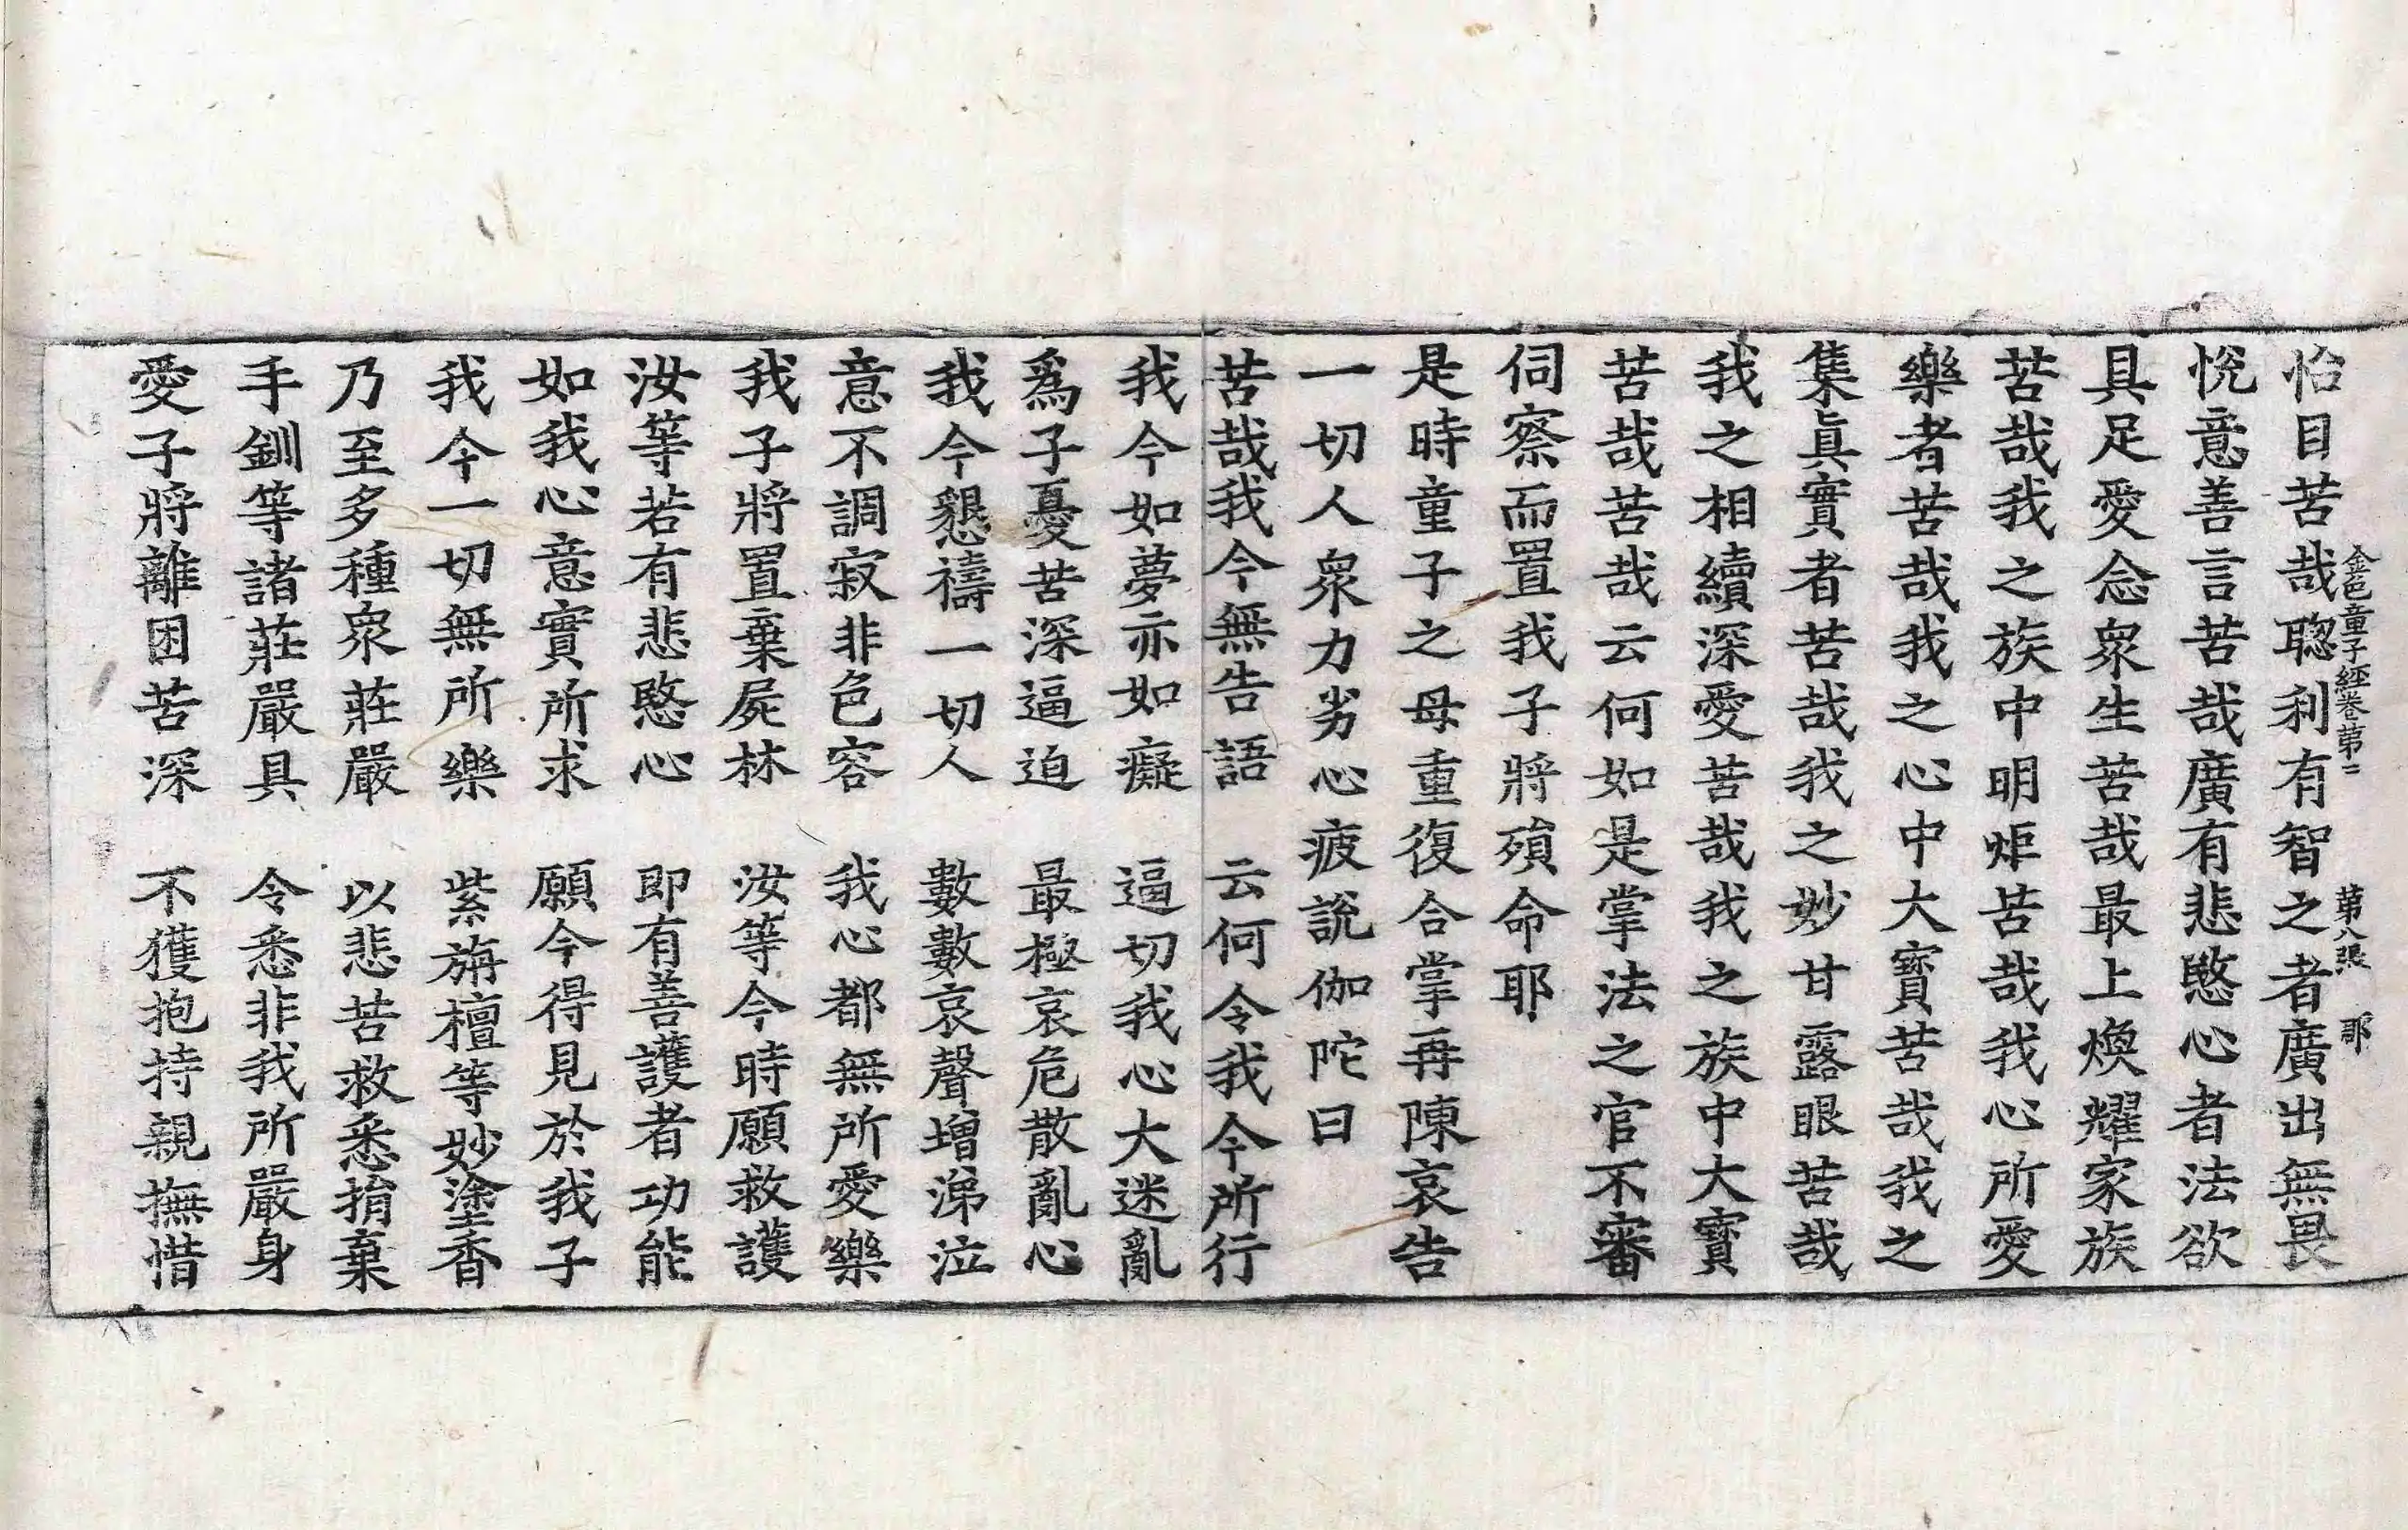 怡目苦哉聦利有智之者廣出無畏
金色童子經卷第二　第八張　耶
悅意善言苦哉廣有悲愍心者法欲
具足愛念衆生苦哉最上煥耀家族
苦哉我之族中明炬苦哉我心所愛
樂者苦哉我之心中大寶苦哉我之
集眞實者苦哉我之妙甘露眼苦哉
我之相續深愛苦哉我之族中大寶
苦哉苦哉云何如是掌法之官不審
伺察而置我子將殞命耶
是時童子之母重復合掌再陳哀告
一切人衆力劣心疲說伽陀曰
苦哉我今無告語　云何令我今所行
我今如夢亦如癡　逼切我心大迷亂
爲子憂苦深逼迫　最極哀危散亂心
我今懇禱一切人　數數哀聲增涕泣
意不調寂非色容　我心都無所愛樂
我子將置棄屍林　汝等今時願救護
汝等若有悲愍心　即有善護者功能
如我心意實所求　願今得見於我子
我今一切無所樂　紫旃檀等妙塗香
乃至多種衆莊嚴　以悲苦救悉捐棄
手釧等諸莊嚴具　令悉非我所嚴身
愛子將離困苦深　不獲抱持親撫惜